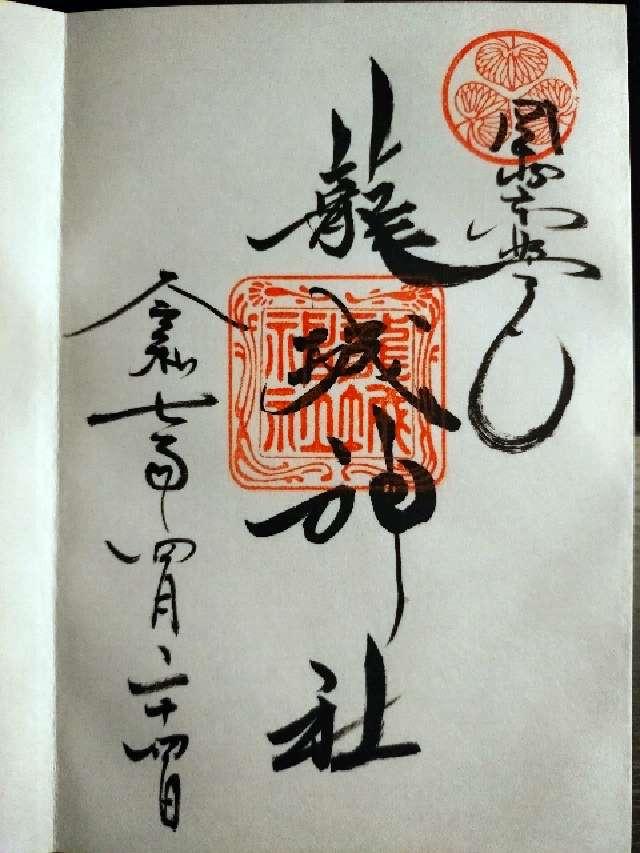 龍城神社
龍城
神社
令和七年四月二十四日